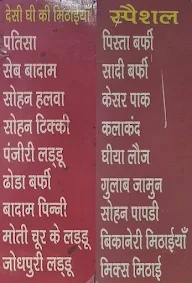 देसी घी की मिठाईयाँ
पतिसा
सेब बादाम
सोहन हलवा
सोहन टिक्की
पंजीरी लड्डू
ढोडा बर्फी
बादाम पिन्नी
मोती चूर के लड्डू
जोधपुरी लड्डू
स्पैशल
पिस्ता बर्फी
सादी बर्फी
केसर पाक
कलाकंद
घीया लौज
गुलाब जामुन
सोहन पापडी
बिकानेरी मिठाईयाँ
मिक्स मिठाई